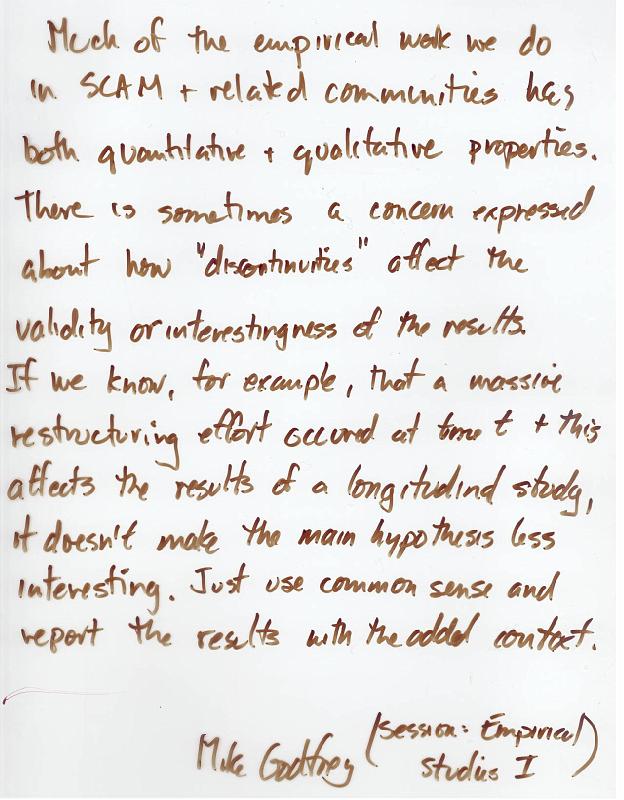 Much of the empirical work we do
in SCAM + related communities has
both quantitative + qualitative properties.
There is sometimes a concern expressed
about how "discontinuities" affect the
validity or interestingness of the results.
If we know, for example, that a massive
restructuring effort occured at time t + this
affects the results of a longitudinal study,
it doesn't make the main hypothesis less
interesting. Just use common sense and
report the results with the added context.
Mike Godfrey (Session: Empirical
Studies I)